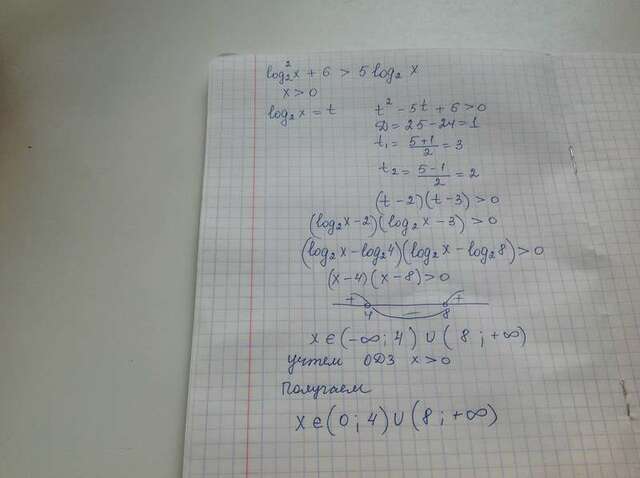 log₂²x + 6 > 5 log₂ x
x > 0
log₂x = t t² - 5t + 6 > 0
D = 25 - 24 = 1
t₁ = (5+1)/2 = 3
t₂ = (5-1)/2 = 2
(t - 2)(t - 3) > 0
(log₂x - 2)(log₂x - 3) > 0
(log₂x - log₂4)(log₂x - log₂8) > 0
(x - 4)(x - 8) > 0
+ − +
4 8
x ∈ (-∞; 4) ∪ (8; +∞)
учтем ОДЗ x > 0
Получаем
x ∈ (0; 4) ∪ (8; +∞)